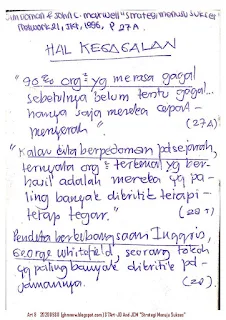 Jim Dornan & John C. Maxwell "Strategi menuju sukses"
Network 21, Jkt, 1996, p 27A.
HAL KEGAGALAN
"90% org² yg merasa gagal
sebetulnya belum tentu gagal...
hanya saja mereka cepat
menyerah".
(27A)
"Kalau kita berpedoman pd sejarah,
ternyata org² terkenal yg ber-
hasil adalah mereka yg pa-
ling banyak dikritik tetapi
tetap tegar."
Pendeta berkebangsaan Inggris,
George Whitefield, seorang tokoh
yg paling banyak dikritik pd
jamannya.
(28).
"Strategi Menuju Sukses"